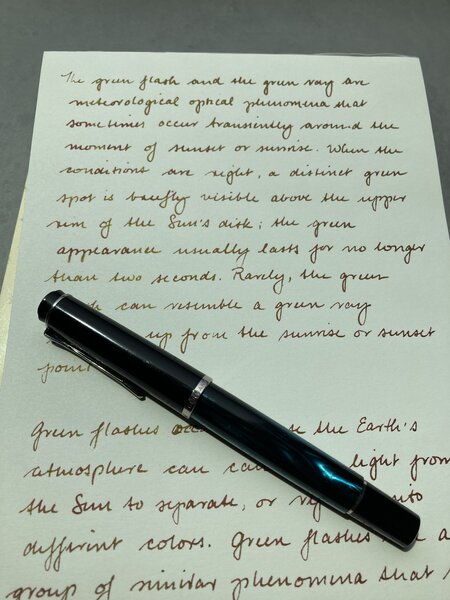 The green flash and the green ray are
meteorological optical phenomena that
sometimes occur transiently around the
moment of sunset or sunrise. When the
conditions are right, a distinct green
spot is briefly visible above the upper
rim of the Sun's disk; the green
appearance usually lasts for no longer
than two seconds. Rarely, the green
can resemble a green ray
up from the sunrise or sunset
Green flashes the Earth's
atmosphere can light from
the Sun to separate, or
different colors. Green flashes a
group of similar phenomena that